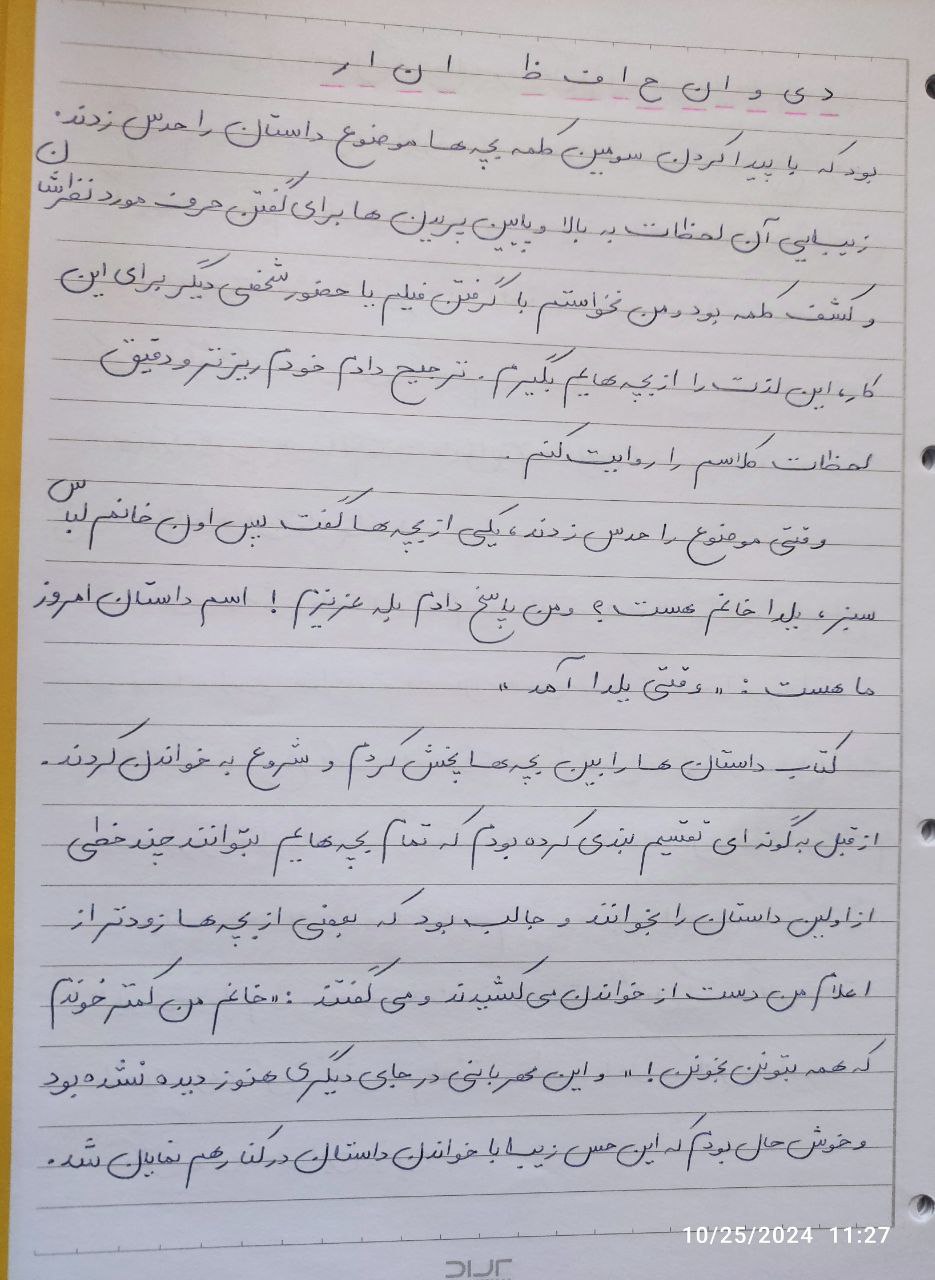 د ی و ا ن ح ا ف ظ ا ن ا ر
بود که با پیدا کردن سومین کلمه بچه ها موضوع داستان را حدس زدند.
زیبایی آن لحظات به بالا و پایین پریدن ها برای گفتن حرف مورد نظرشان
و کشف کلمه بود و من نخواستم با گرفتن فیلم یا حضور شخصی دیگر برای این
کار، این لذت را از بچه هایم بگیرم. ترجیح دادم خودم ریزتر و دقیق
لحظات کلاسم را روایت کنم.
وقتی موضوع را حدس زدند، یکی از بچه ها گفت پس اون خانم لباس
سبز، یلدا خانم هست؟ ومن پاسخ دادم بله عزیزم! اسم داستان امروز
ما هست: «وقتی یلدا آمد»
کتاب داستان ها را بین بچه ها پخش کردم و شروع به خواندن کردند.
از قبل به گونه ای تقسیم بندی کرده بودم که تمام بچه هایم بتوانند چند خطی
از اولین داستان را بخوانند و جالب بود که بعضی از بچه ها زودتر از
اعلام من دست از خواندن می کشیدند و می گفتند: «خانم من کمتر خوندم
که همه بتونن بخونن!» و این مهربانی در جای دیگری هنوز دیده نشده بود
و خوش حال بودم که این حس زیبا با خواندن داستان در کنار هم نمایان شد.
10/25/2024 11:27